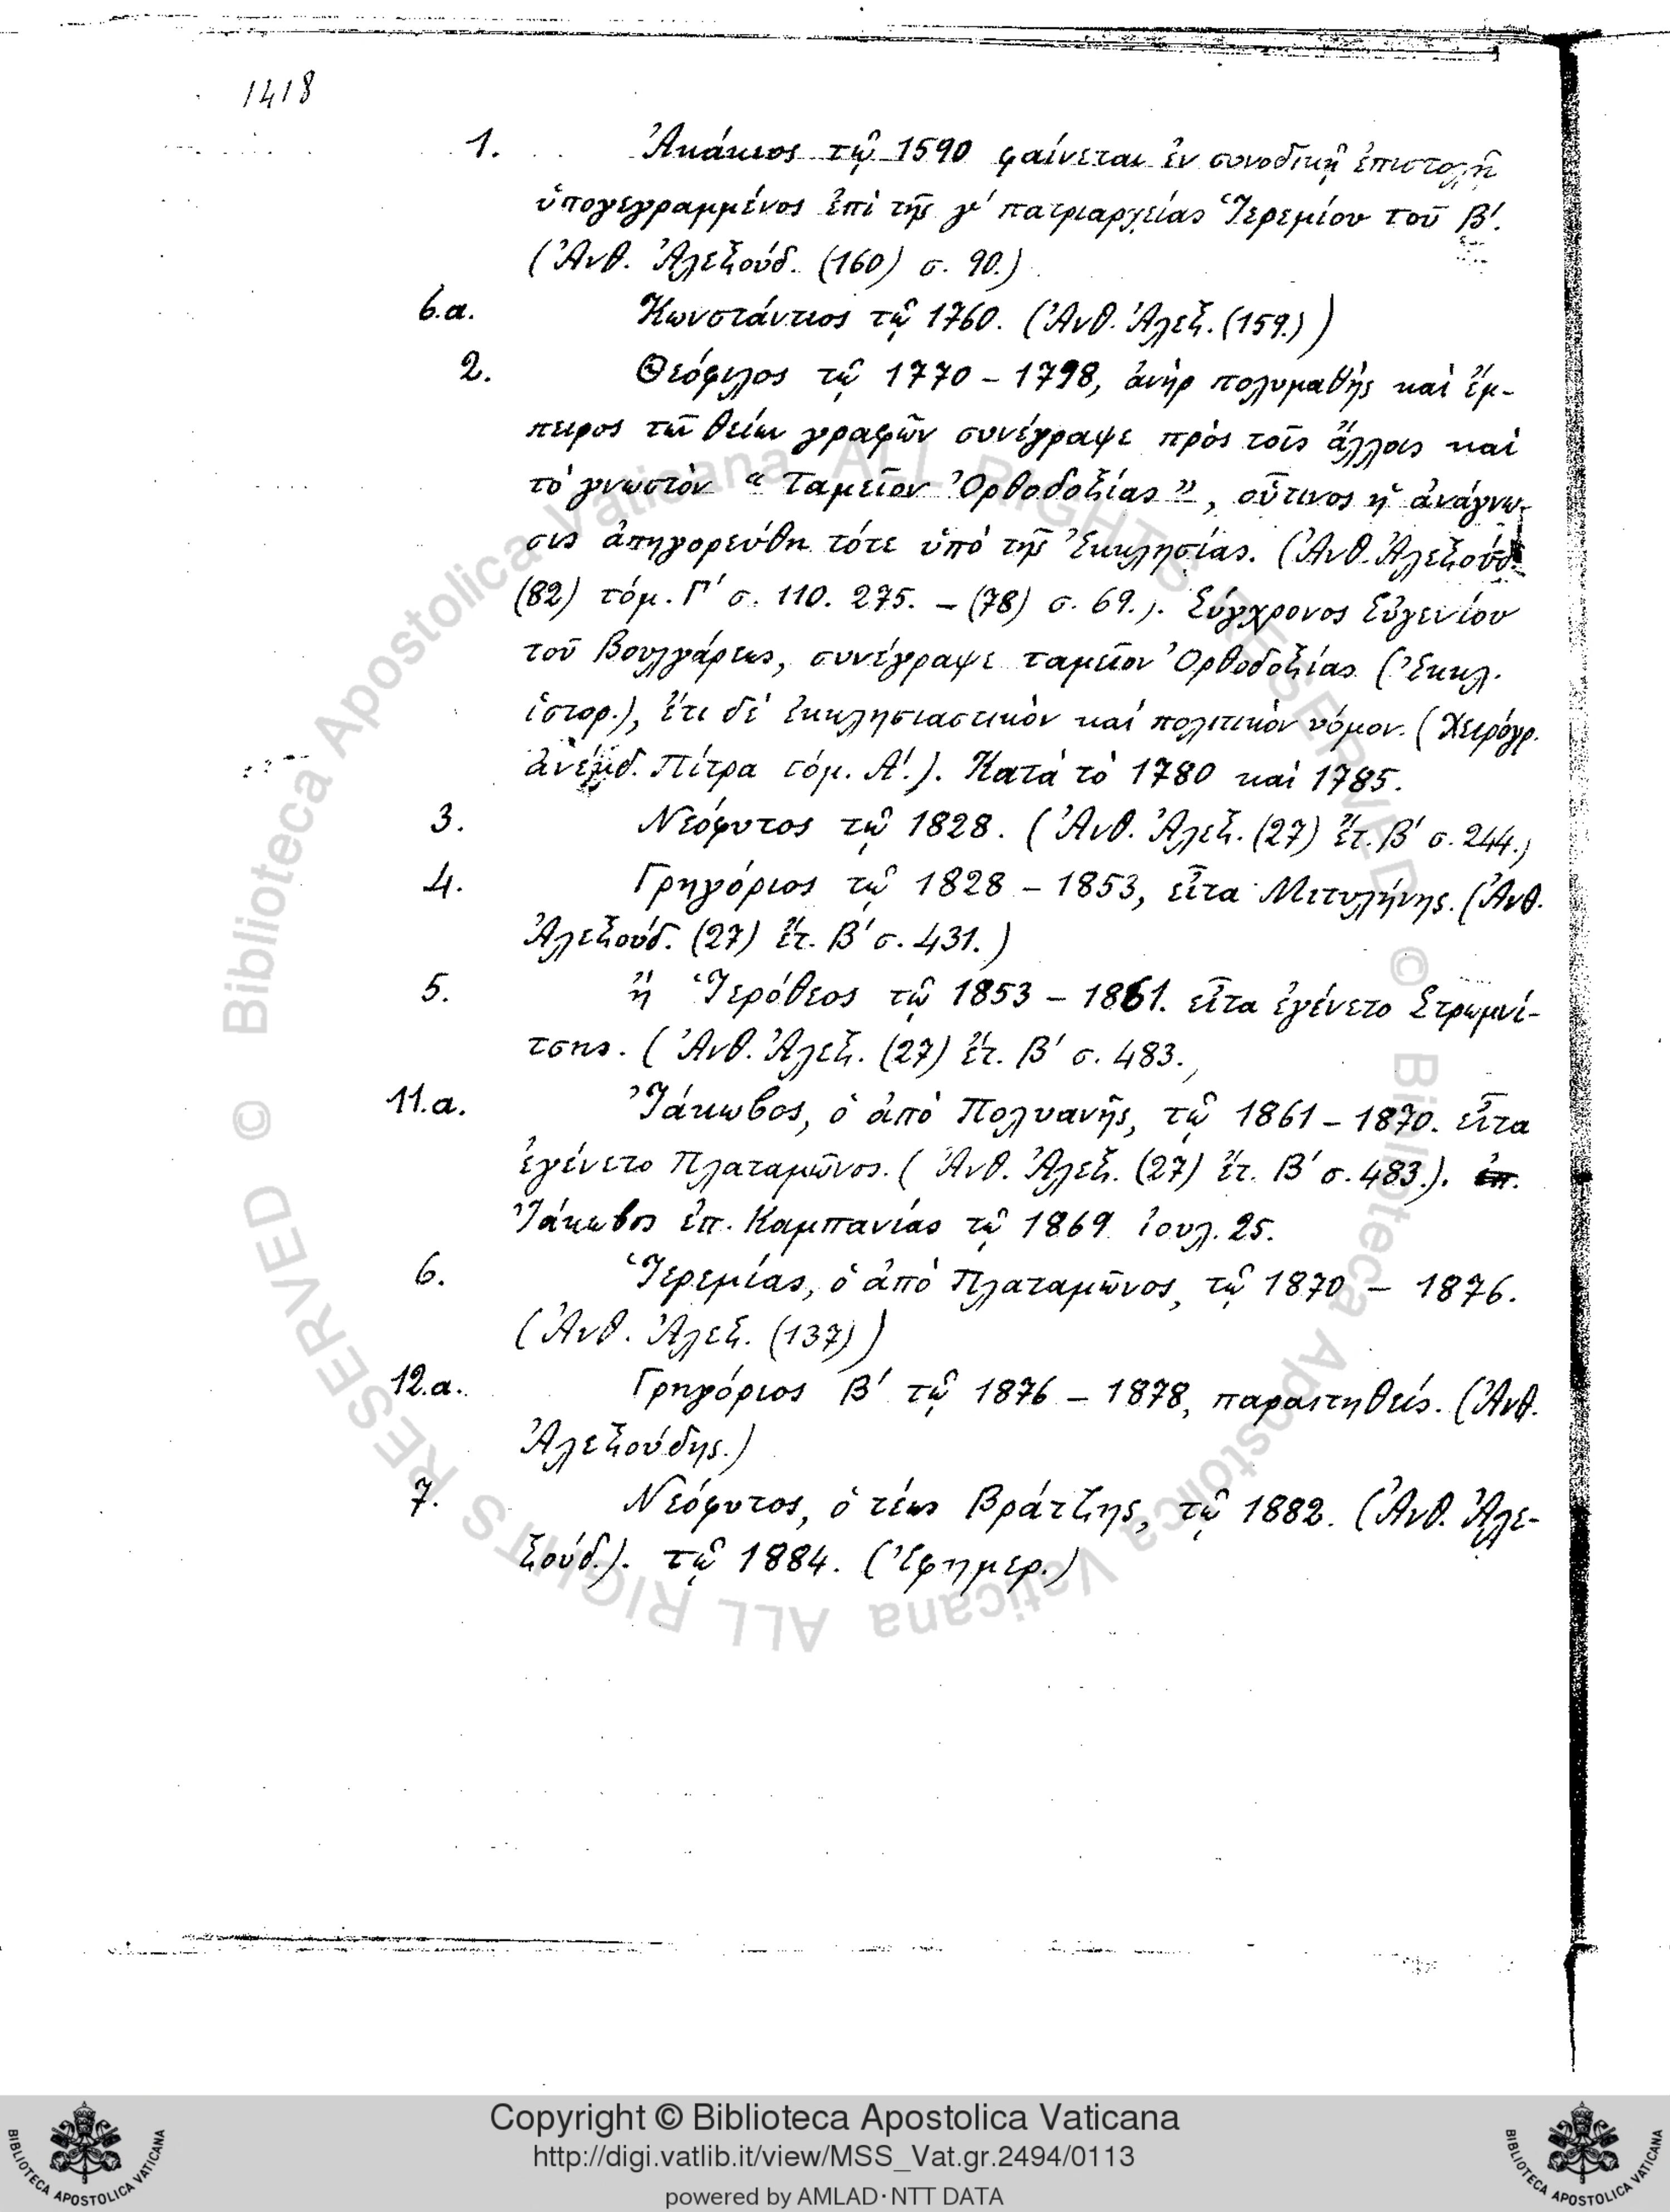 1418
1. Ἀκάκιος τῷ 1590 φαίνεται ἐν συνοδικῇ ἐπιστολῇ
ὑπογεγραμμένος ἐπὶ τῆς γ' πατριαρχείας Ἱερεμίου τοῦ Β'.
(Ἀνθ. Ἀλεξούδ. (160) σ. 90.)
6.α. Κωνστάντιος τῷ 1760. (Ἀνθ. Ἀλεξ. (159.))
2. Θεόφιλος τῷ 1770 – 1798, ἀνὴρ πολυμαθὴς καὶ ἔμ-
πειρος τῶν θείων γραφῶν συνέγραψε πρὸς τοῖς ἄλλοις καὶ
τὸ γνωστὸν "Ταμεῖον Ὀρθοδοξίας", οὗτινος ἡ ἀνάγνω-
σις ἀπηγορεύθη τότε ὑπὸ τῆς Ἐκκλησίας. (Ἀνθ. Ἀλεξούδ.
(82) τόμ. Γ' σ. 110. 275. – (78) σ. 69.). Σύγχρονος Εὐγενίου
τοῦ Βουλγάρεως, συνέγραψε ταμεῖον Ὀρθοδοξίας (Ἐκκλ.
ἱστορ.), ἔτι δὲ ἐκκλησιαστικὸν καὶ πολιτικὸν νόμον. (Χειρόγρ.
ἀνέκδ. Πέτρα τόμ. Α'.). Κατὰ τὸ 1780 καὶ 1785.
3. Νεόφυτος τῷ 1828. (Ἀνθ. Ἀλεξ. (27) ἔτ. Β' σ. 244.)
4. Γρηγόριος τῷ 1828 – 1853, εἶτα Μιτυλήνης. (Ἀνθ.
Ἀλεξούδ. (27) ἔτ. Β' σ. 431.)
5. ἢ Ἱερόθεος τῷ 1853 – 1861. εἶτα ἐγένετο Στρωμνί-
τσης. (Ἀνθ. Ἀλεξ. (27) ἔτ. Β' σ. 483.)
11.α. Ἰάκωβος, ὁ ἀπὸ Πολυανῆς, τῷ 1861 – 1870. εἶτα
ἐγένετο Πλαταμῶνος. (Ἀνθ. Ἀλεξ. (27) ἔτ. Β' σ. 483.). ἐπ.
Ἰάκωβος ἐπ. Καμπανίας τῷ 1869 ἰουλ. 25.
6. Ἱερεμίας, ὁ ἀπὸ Πλαταμῶνος, τῷ 1870 – 1876.
(Ἀνθ. Ἀλεξ. (137))
12.α. Γρηγόριος Β' τῷ 1876 – 1878, παραιτηθείς. (Ἀνθ.
Ἀλεξούδης.)
7. Νεόφυτος, ὁ τέως Βράτζης, τῷ 1882. (Ἀνθ. Ἀλε-
ξούδ.). τῷ 1884. (Ἐφημερ.)
© Biblioteca Apostolica Vaticana ALL RIGHTS RESERVED © Biblioteca Apostolica Vaticana ALL RIGHTS RESERVED
BIBLIOTECA APOSTOLICA VATICANA
Copyright © Biblioteca Apostolica Vaticana
http://digi.vatlib.it/view/MSS_Vat.gr.2494/0113
powered by AMLAD·NTT DATA
BIBLIOTECA APOSTOLICA VATICANA